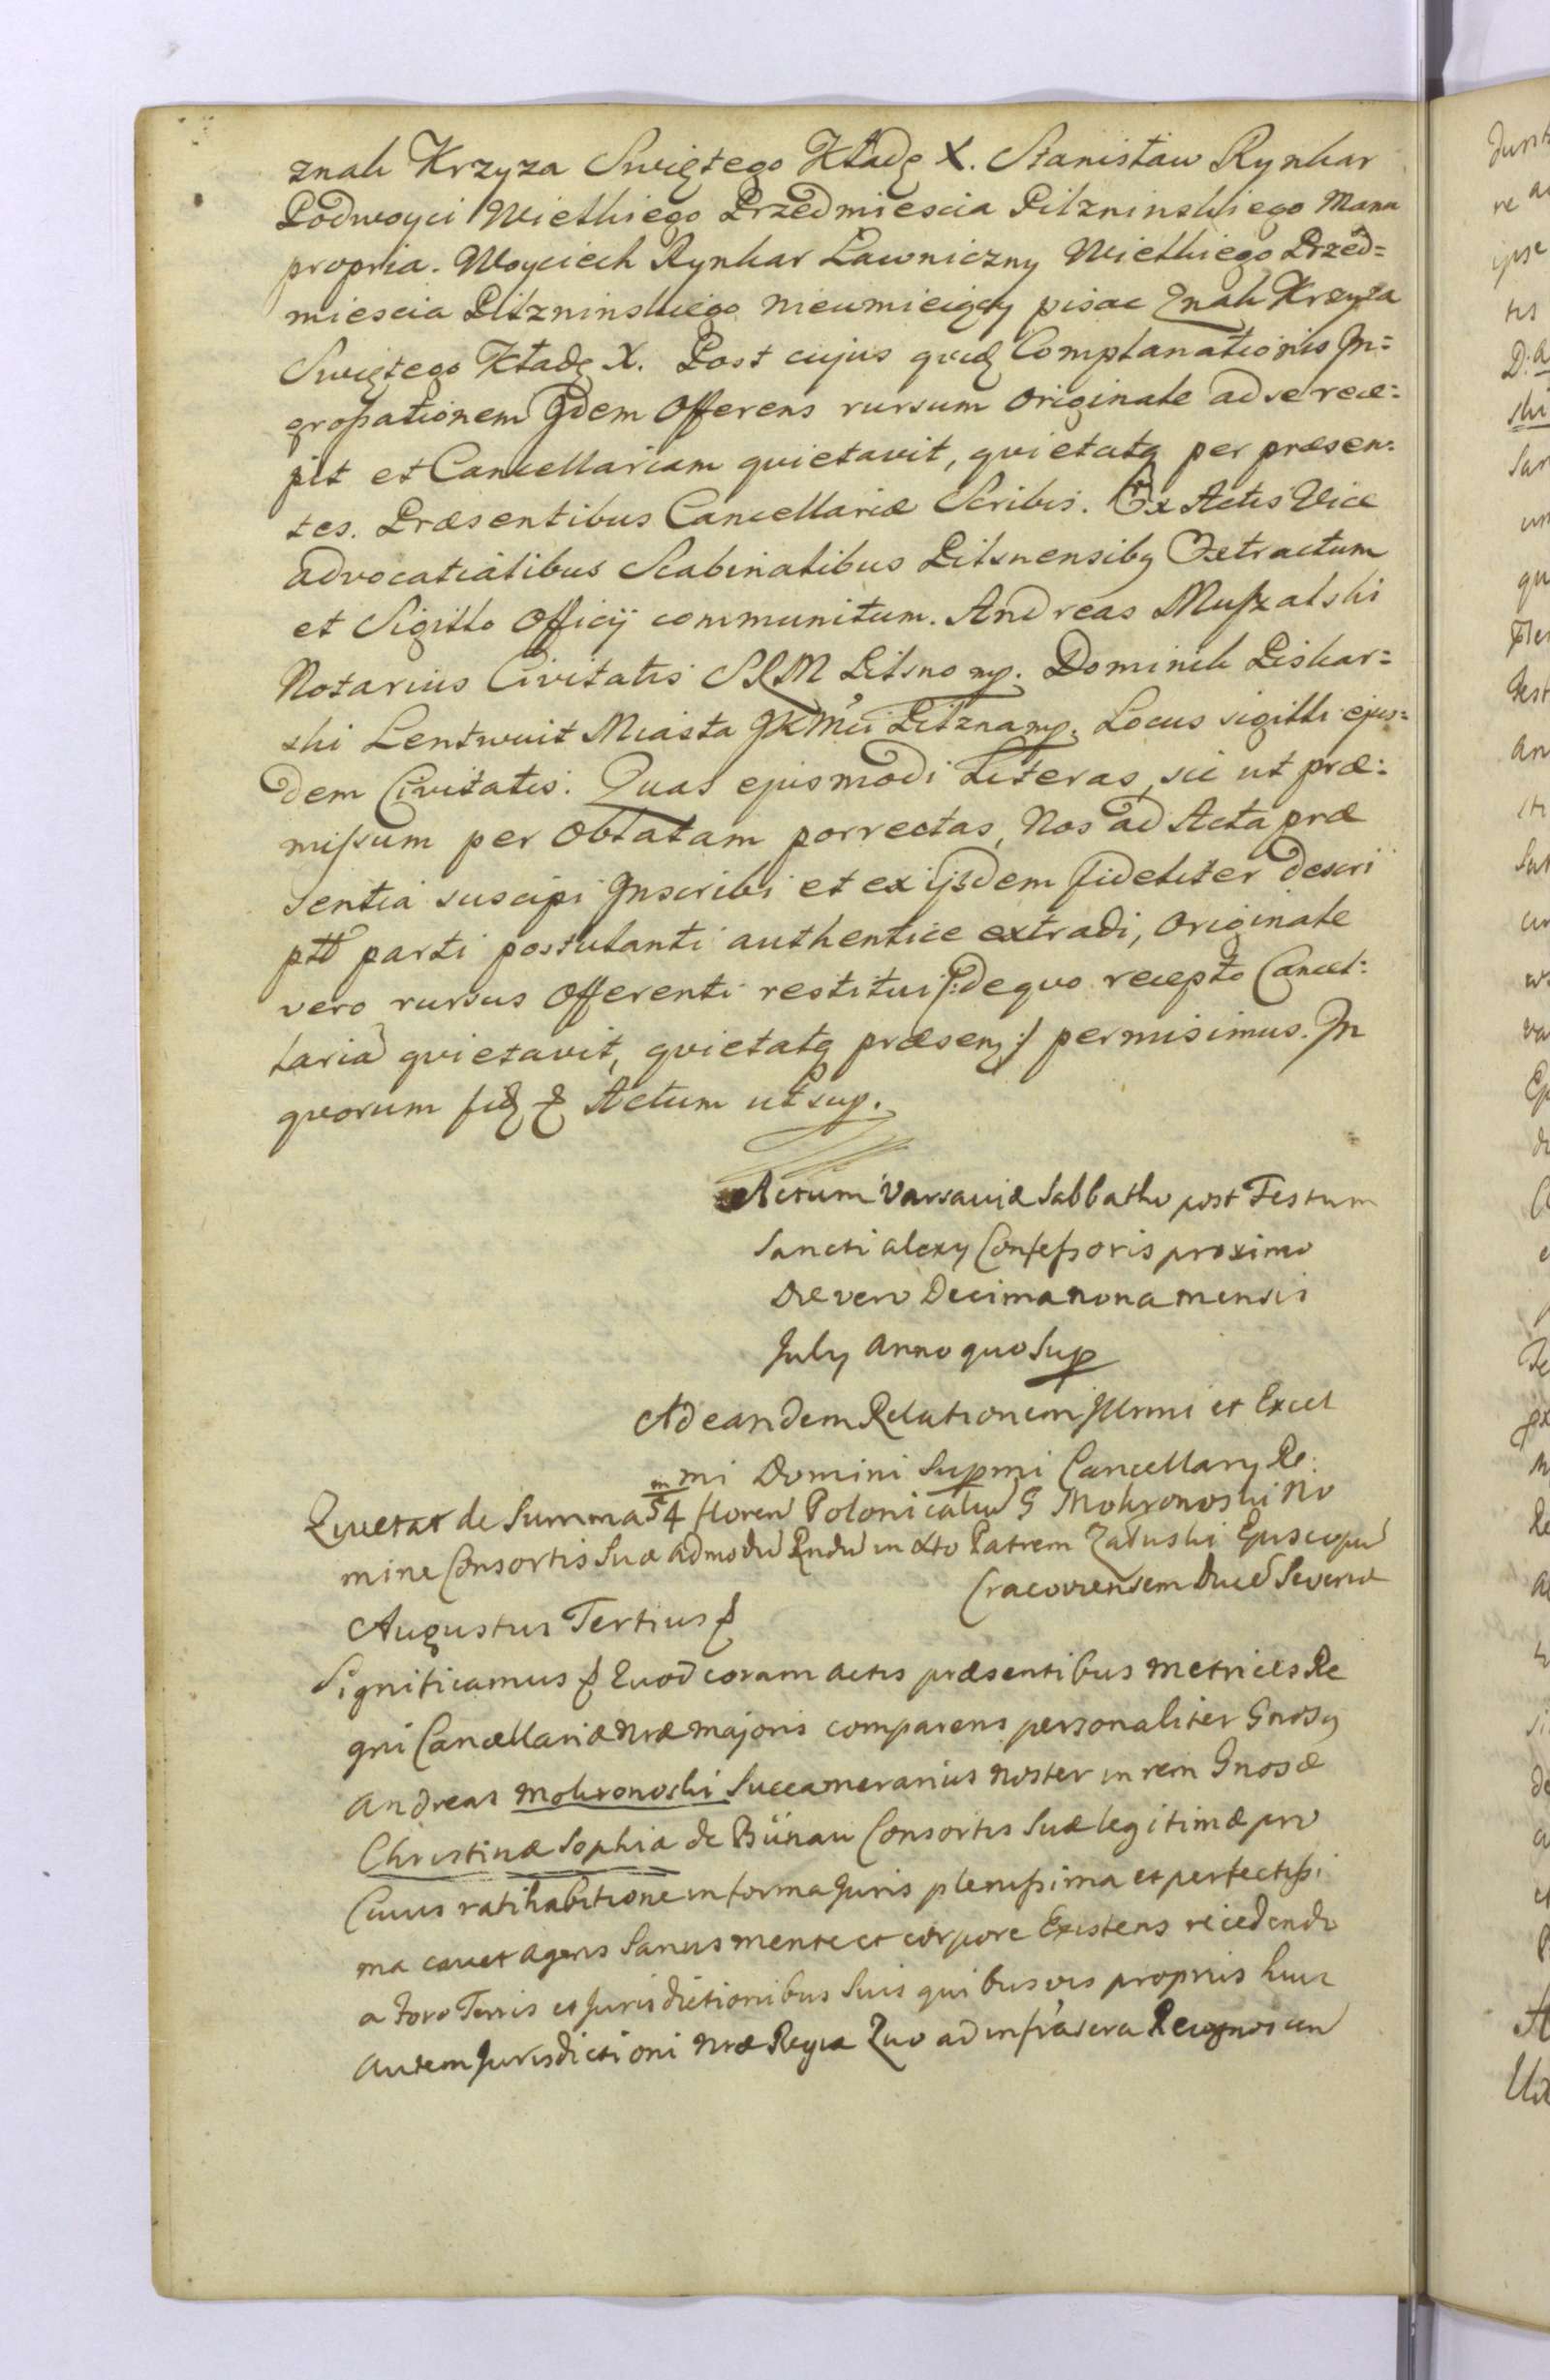 znak Krzyza Swiętego Kładę X. Stanisław Rynkar
Podwoyci Wielkiego Przedmiescia Pilzninskiego Manu
propria. Woyciech Rynkar Ławniczny Wielkiego Przed=
miescia Pilzninskiego nieumieiący pisac Znak Krzyza
Swiętego Kładę X. Post cujus quidē Complanationis In=
grossationem Idem Offerens rursum Originale ad se rece=
pit et Cancellariam quietavit, quietatq per præsen=
tes. Præsentibus Cancellariæ Scribis. Ex Actis Vice
advocatialibus Scabinalibus Pilsnensibq Extractum
et Sigillo Officij communitum. Andreas Muszalski
Notarius Civitatis SRM Pilsno mp. Dominik Piskar=
ski Lentwuit Miasta JKMci Pilzna mp. Locus sigilli ejus=
dem Civitatis. Quas ejusmodi Literas, sic ut præ=
missum per Oblatam porrectas, Nos ad Acta præ
sentia suscipi Inscribi et ex ijsdem fideliter descri
ptt parti postulanti authentice extradi, Originale
vero rursus Offerenti restitui /: de quo recepto Cancel=
laria quietavit, quietatq præsenq :/ permisimus. In
quorum fidē & Actum ut sup.
Actum Varsaviæ Sabbatho post Festum
Sancti Alexy Confessoris proximo
Die vero Decima nona mensis
July Anno quo Sup
Ad eandem Relationem Illrmi et Excel
mi Domini Supmi Cancellary Re.
Quietat de Summa 54 m floren Polonicaliu G Mokronoski No
mine Consortis Suæ admodu Rndu in Xto Patrem Załuski Episcopu
Cracoviensem Duce Severiæ
Augustus Tertius &
Significamus & Quod coram actis præsentibus Metrices Re
gni Cancellariæ nræ majoris comparens personaliter Gnosq
Andreas Mokronoski Succamerarius noster in rem Gnosæ
Christinæ Sophiæ de Bünau Consortis Suæ legitimæ pro
Cuius ratihabitione in forma Juris plenissima et perfectissi
ma cavet agens Sanus mente et corpore Existens recedendo
a foro Terris et Jurisdictionibus Suis quibusvis proprijs huic
autem Jurisdictioni nræ Regiæ Quo ad infrascra Recognoscen